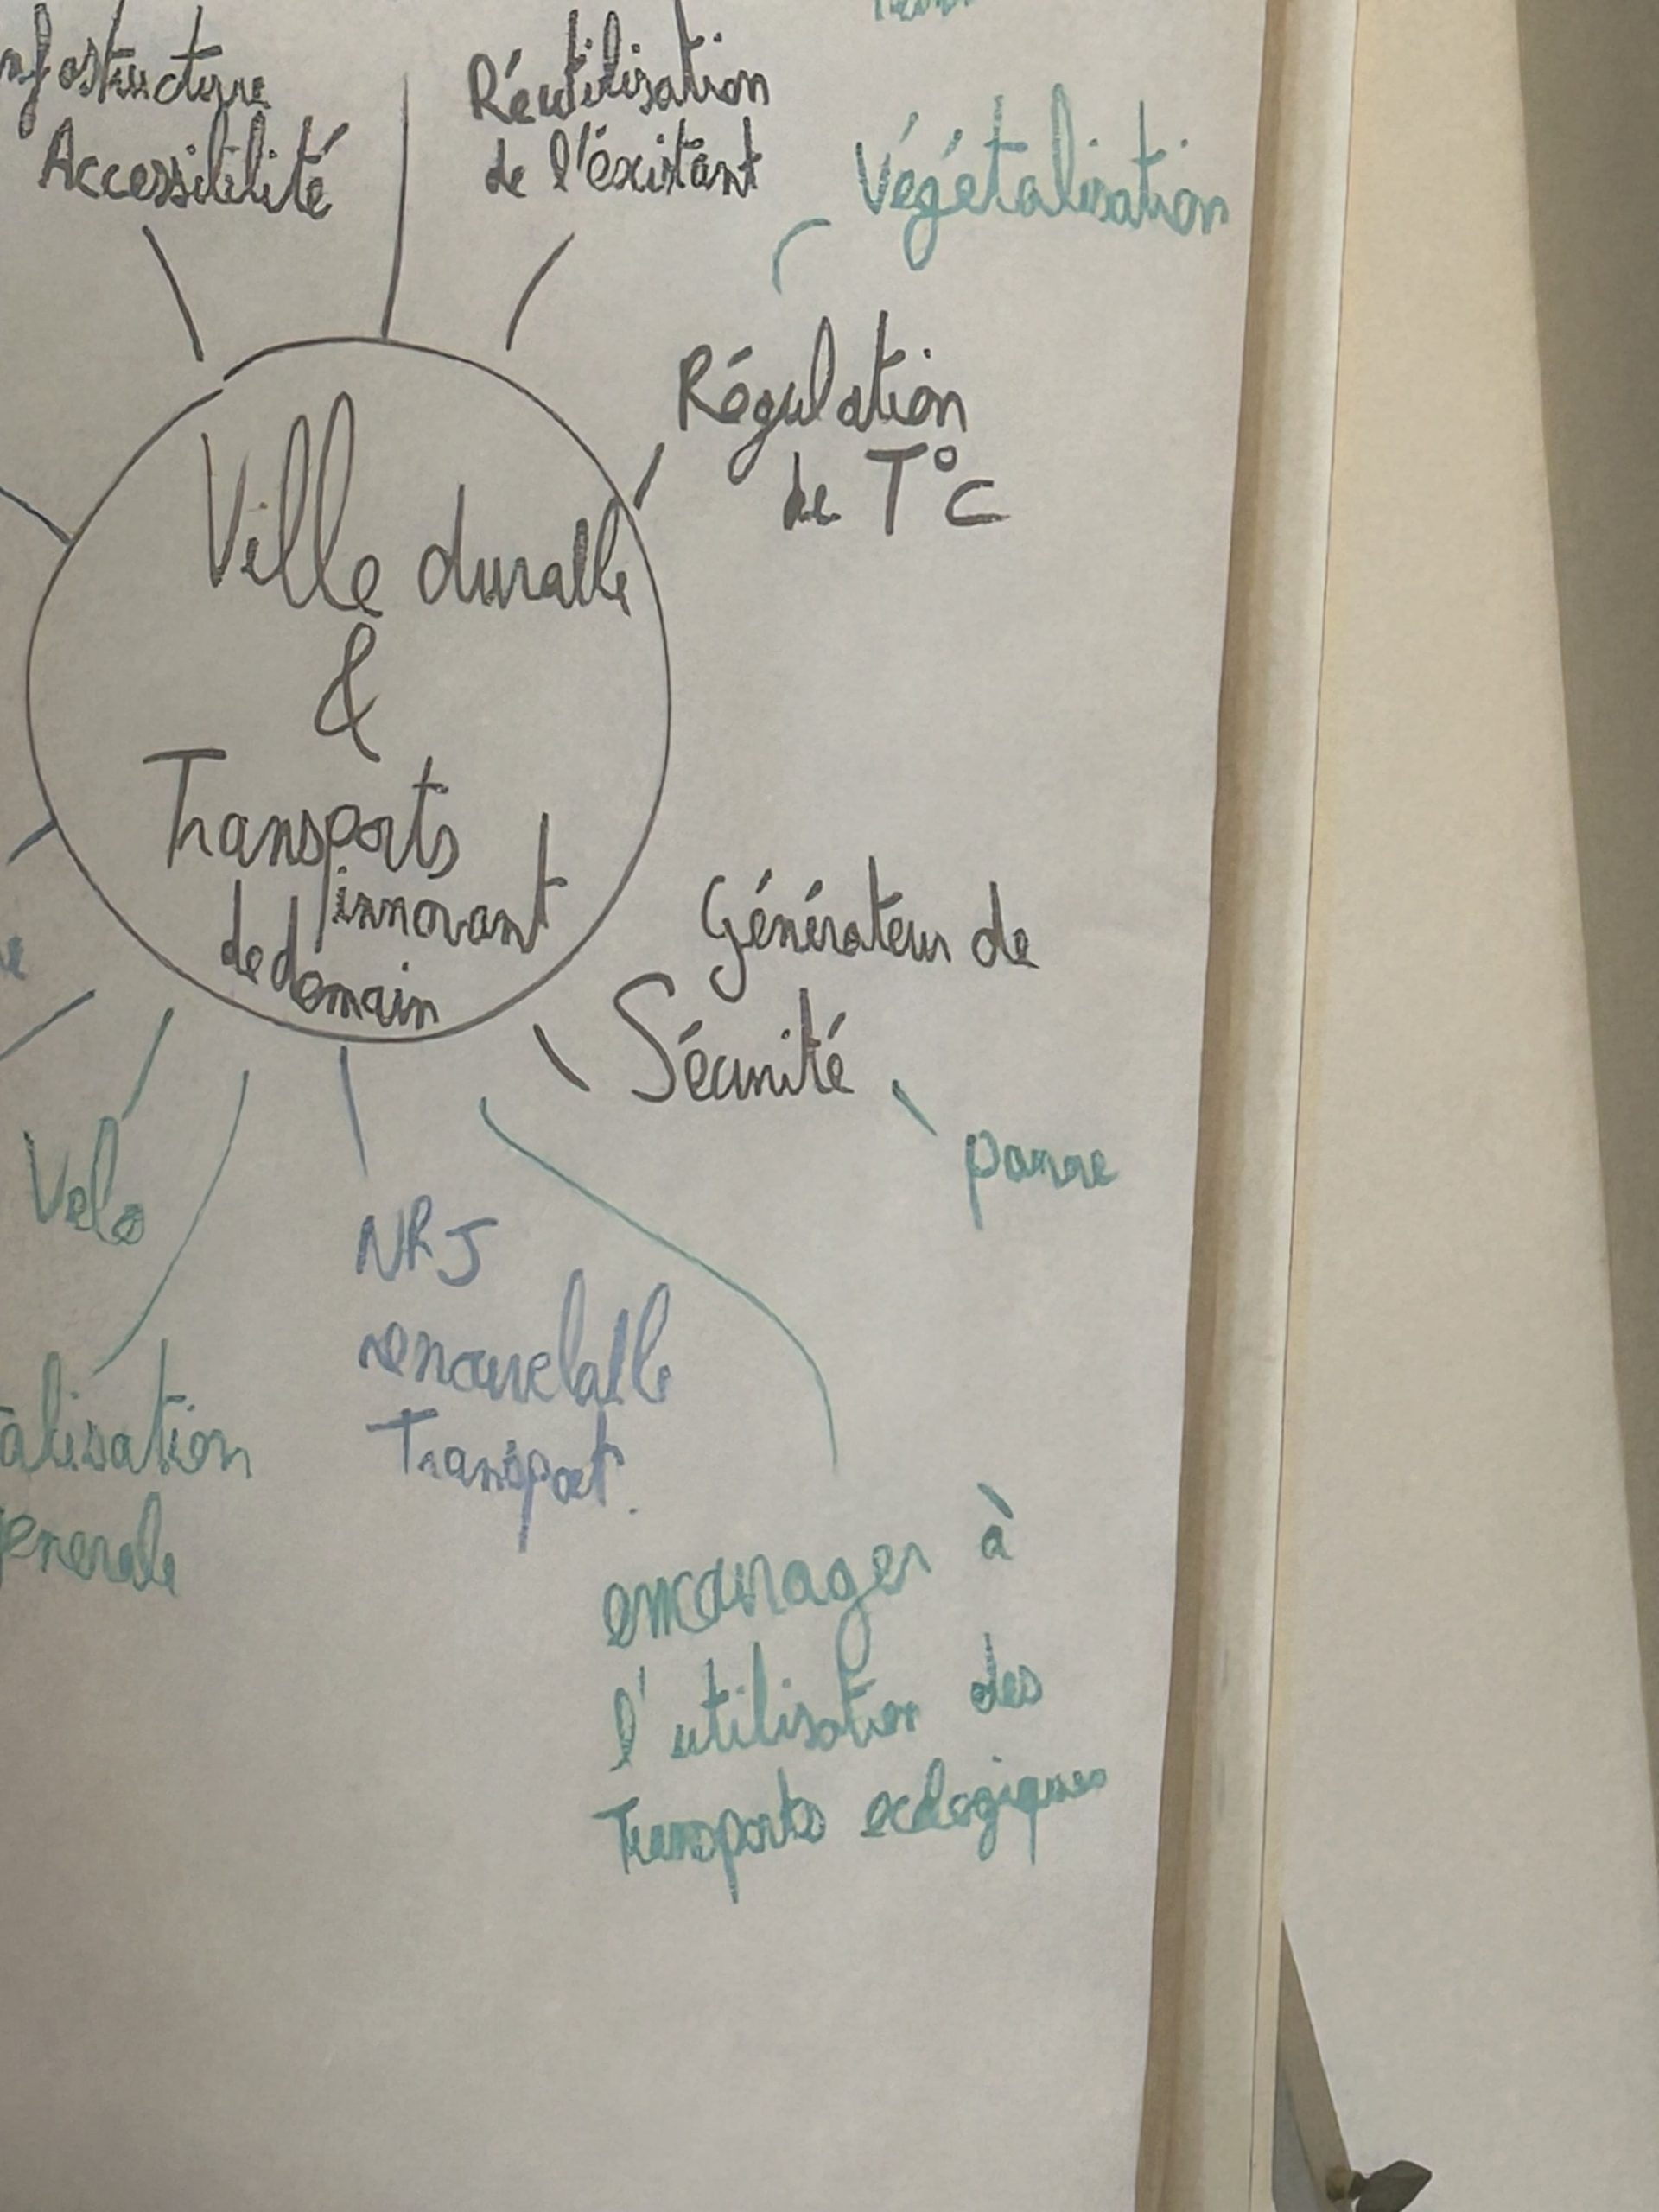 nfostructure
Accessibilité
Réutilisation
de l'éxistant
Végétalisation
Régulation
de T°C
Ville durable
&
Transports
innovant
de demain
Générateur de
Sécurité
panne
Velo
NRJ
renouvelable
Transport.
alisation
generale
encourager à
l'utilisation des
Transports ecologiques